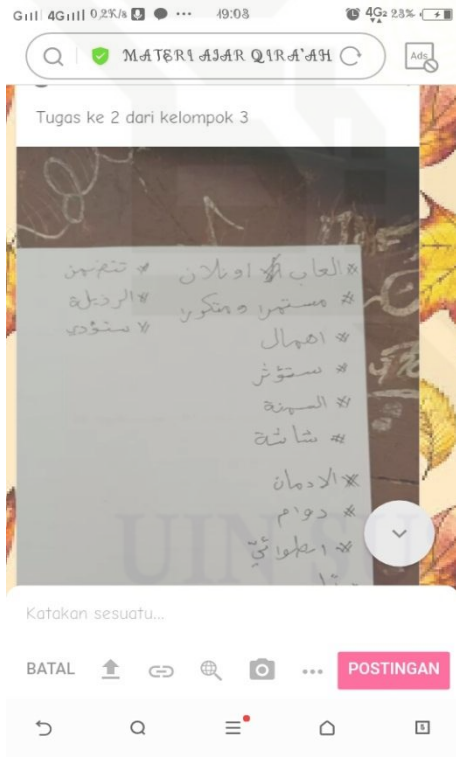 4G 0,2K/s 19:03 4G2 23%
MATERI AJAR QIRA'AH
Ads
Tugas ke 2 dari kelompok 3
* العاب اونلان
* مستمرا ومتكررا
* اهمال
* ستؤثر
* السمنة
* شاشة
* الادمان
* دوام
* انطوائي
* تتضمن
* الرذيلة
* ستؤدي
UIN SU
Katakan sesuatu...
BATAL
POSTINGAN